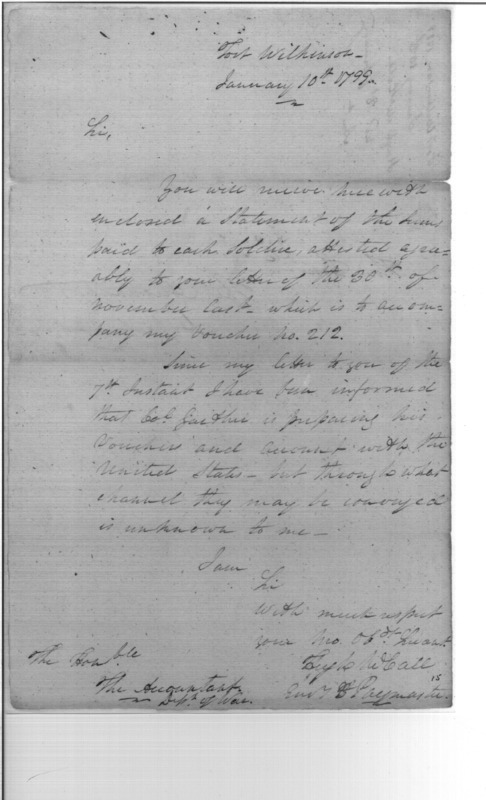 Fort Wilkinson
January 10th 1799
Sir,
You will receive herewith
enclosed a Statement of the Sums
paid to each Soldier, attested agre-
ably to your letter of the 30th of
November last which is to accom-
pany my Voucher no. 212.
Since my letter to you of the
7th Instant I have been informed
that Col Gaither is preparing his
Vouchers and account with the
United States - but through what
channel they may be conveyed
is unknown to me -
I am
Sir
With much respect
your mo. Obdt Servant
McCall
Paymaster
The Honble
The Accountant
Dpt of War